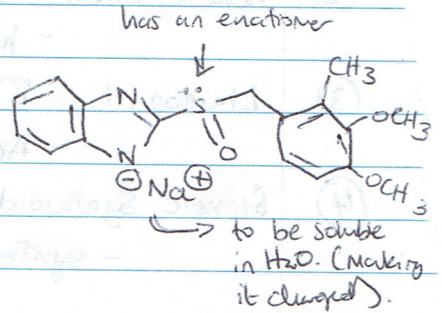 has an enatiomer
CH3
N
S
OCH3
O
N
OCH3
⊖ Na⊕
to be soluble
in H2O. (making
it charged).